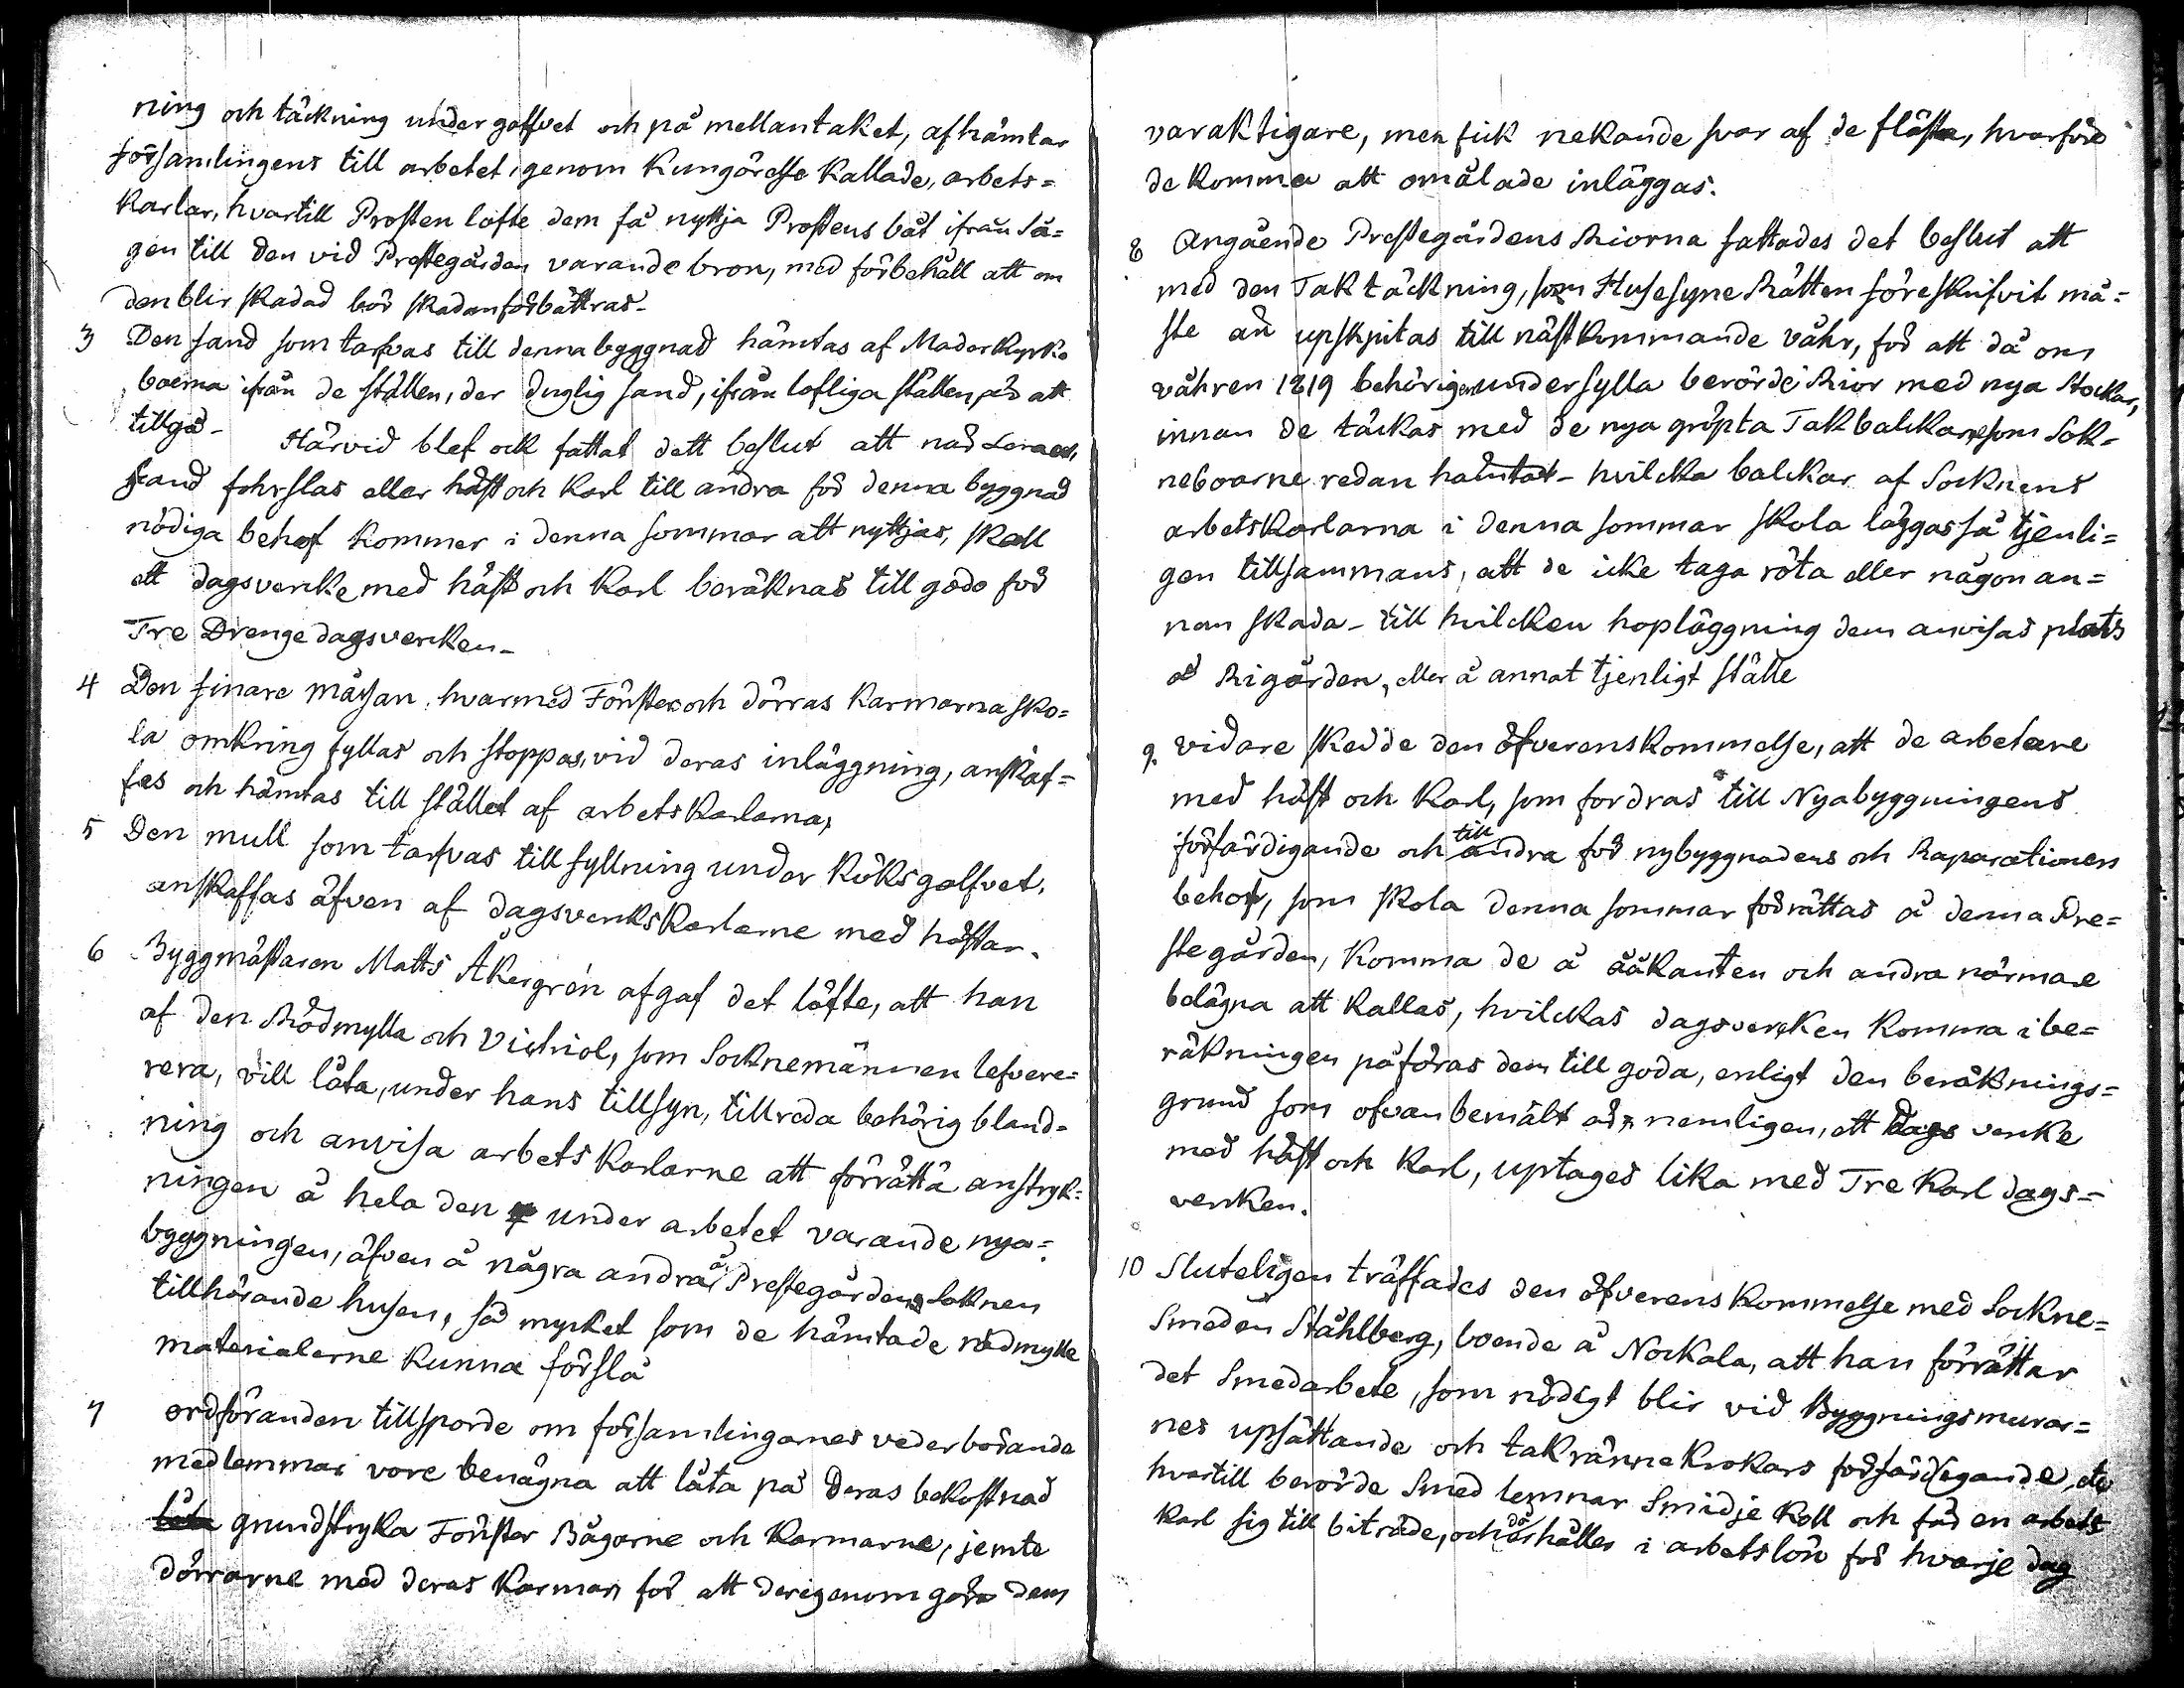 ning och täckning under golfvet och på mellantaket, afhämtar
församlingens till arbetet, genom Kungörelse Kallade, arbets=
Karlar, hvartill Prosten lofte dem få nyttja Prostens båt ifrån Så=
gen till den vid Prestegården varande bron, med förbehåll att om
den blir skadad bör skadan förbättras-
3 Den sand som tarfvas till denna byggnad hämtas af Maderkyrko
boerna ifrån de ställen, der duglig sand, ifrån lofliga ställen, är att
tillgå- Härvid blef ock fattat dett beslut att när Leran,
sand fohrslas eller häst och Karl till andra för denna byggnad
nödiga behof Kommer i denna sommar att nyttjas, skall
ett dagsvercke med häst och Karl beräknas till godo för
Tre Drenge dagsvercken-
4 Den finare måssan, hvarmed Fönster och dörras Karmarna sko=
la omkring fyllas och stoppas, vid deras inläggning, anskaf=
fas och hämtas till stället af arbetsKarlarna,
5 Den mull som tarfvas till fyllning under Köksgolfvet,
anskaffas äfven af dagsvercksKarlarne med hästar.
6 Byggmästaren Matts Åkergrén afgaf det löfte, att han
af den Rödmylla och Vichiol, som Socknemännen lefvere=
rera, vill låta, under hans tillsyn, tillreda behörig bland=
ning och anvisa arbetsKarlarne att förrätta anstryk=
ningen å hela den under arbetet varande nya=
byggningen, äfven å några andra å Prestegårdens Soknen
tillhörande husen, så mycket som de hämtade rödmylle
materialerne Kunna förslå
7 ordföranden tillsporde om församlingarnes vederbörande
medlemmar vore benägna att låta på deras bekostnad
låta grundstryka Fönster Bågarne och Karmarne, jemte
dörrarne med deras Karmar, för att derigenom göra dem
varaktigare, men fick nekande svar af de flästa, hvarföre
de Komma att omålade inläggas.
8 Angående Prestegårdens Riorna fattades det beslut att
med den Taktäckning, som Husesyne Rätten föreskrifvit må=
ste än upskjutas till nästkommande våhr, för att då om
våhren 1819 behörigen undersylla berörde Rior med nya Stockar,
innan de täckas med de nya gröpta Takbalckar, som Sok=
neboarne redan hämtat- hvilcka balckar af Socknens
arbetsKarlarna i denna sommar skola läggas så tjenli=
gen tillsammans, att de icke taga röta eller någon an=
nan skada- till hvilcken hopläggning dem anvisas plats
å Rigården, eller å annat tjenligt ställe
9. vidare skedde den öfverenskommelse, att de arbetare
med häst och Karl, som fordras till Nyabyggningens
förfärdigande och till andra för nybyggnadens och Raparationen
behof, som skola denna sommar förrättas å denna Pre=
stegården, Komma de å ååkanten och andra närmare
belägna att Kallas, hvilckas dagsvercken Komma i be=
räkningen påföras dem till goda, enligt den beräknings=
grund som ofvanbemält är, nemligen, ett dags vercke
med häst och Karl, uptages lika med Tre Karl dags=
vercken.
10 Sluteligen träffades den öfverenskommelse med Sockne=
Smeden Ståhlberg, boende å Nockala, att han förrättar
det Smedarbete, som nödigt blir vid Byggningsmurar=
nes upsättande och takränne Krokars förfärdigande, etc
hvartill berörde Smed lemnar Smidje Koll och får en arbets
Karl sig till biträde, och då erhåller i arbetslön för hvarje dag